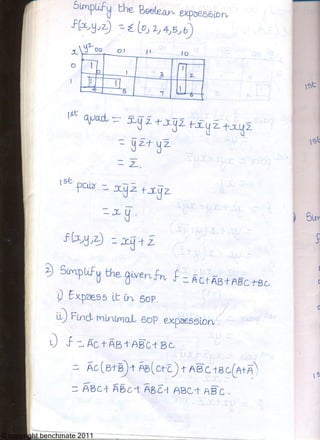 Simplify the Boolean expression
f(x,y,z) = Σ(0,2,4,5,6)
x\yz 00 01 11 10
0 1 0 1 3 1 2
1 1 4 1 5 7 1 6
1st quad = x̄ȳz̄ + xȳz̄ + x̄yz̄ + xyz̄
= ȳz̄ + yz̄
= z̄.
1st pair = xȳz̄ + xȳz
= xȳ.
f(x,y,z) = xȳ + z̄
2) Simplify the given fn f = ĀC+ĀB+AB̄C+BC
i) Express it in SOP.
ii) Find minimal SOP expression
i) f = ĀC+ĀB+AB̄C+BC
= ĀC(B+B̄)+ĀB(C+C̄)+AB̄C+BC(A+Ā)
= ĀBC+ĀB̄C+ĀBC̄+ABC+AB̄C.
copyright benchmate 2011